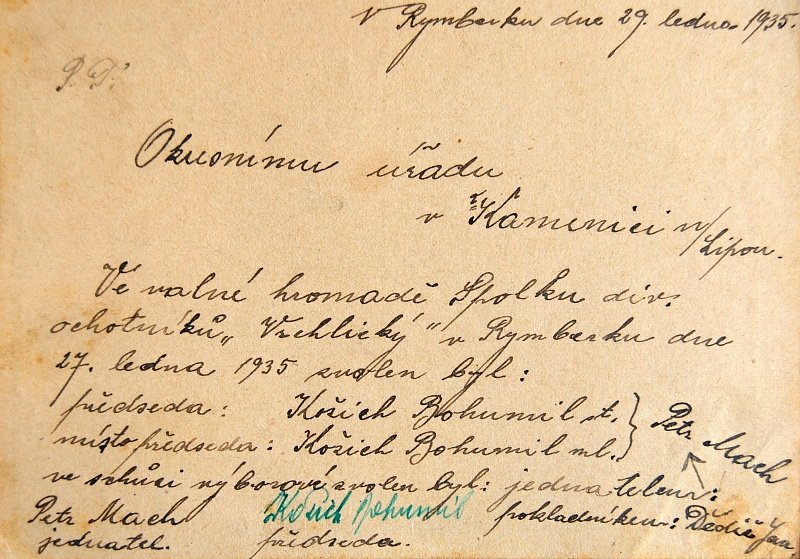 V Rymberku dne 29. ledna 1935.
P. T.
Okresnímu úřadu
v Kamenici n/Lipou.
Ve valné hromadě Spolku div.
ochotníků „Vrchlický“ v Rymberku dne
27. ledna 1935 zvolen byl:
předseda: Košich Bohumil st.
místopředseda: Košich Bohumil ml.
ve schůsi výborové zvolen byl: jednatelem:
Petr Mach
pokladníkem: Dědič Jan
Petr Mach
jednatel.
Košich Bohumil
předseda.